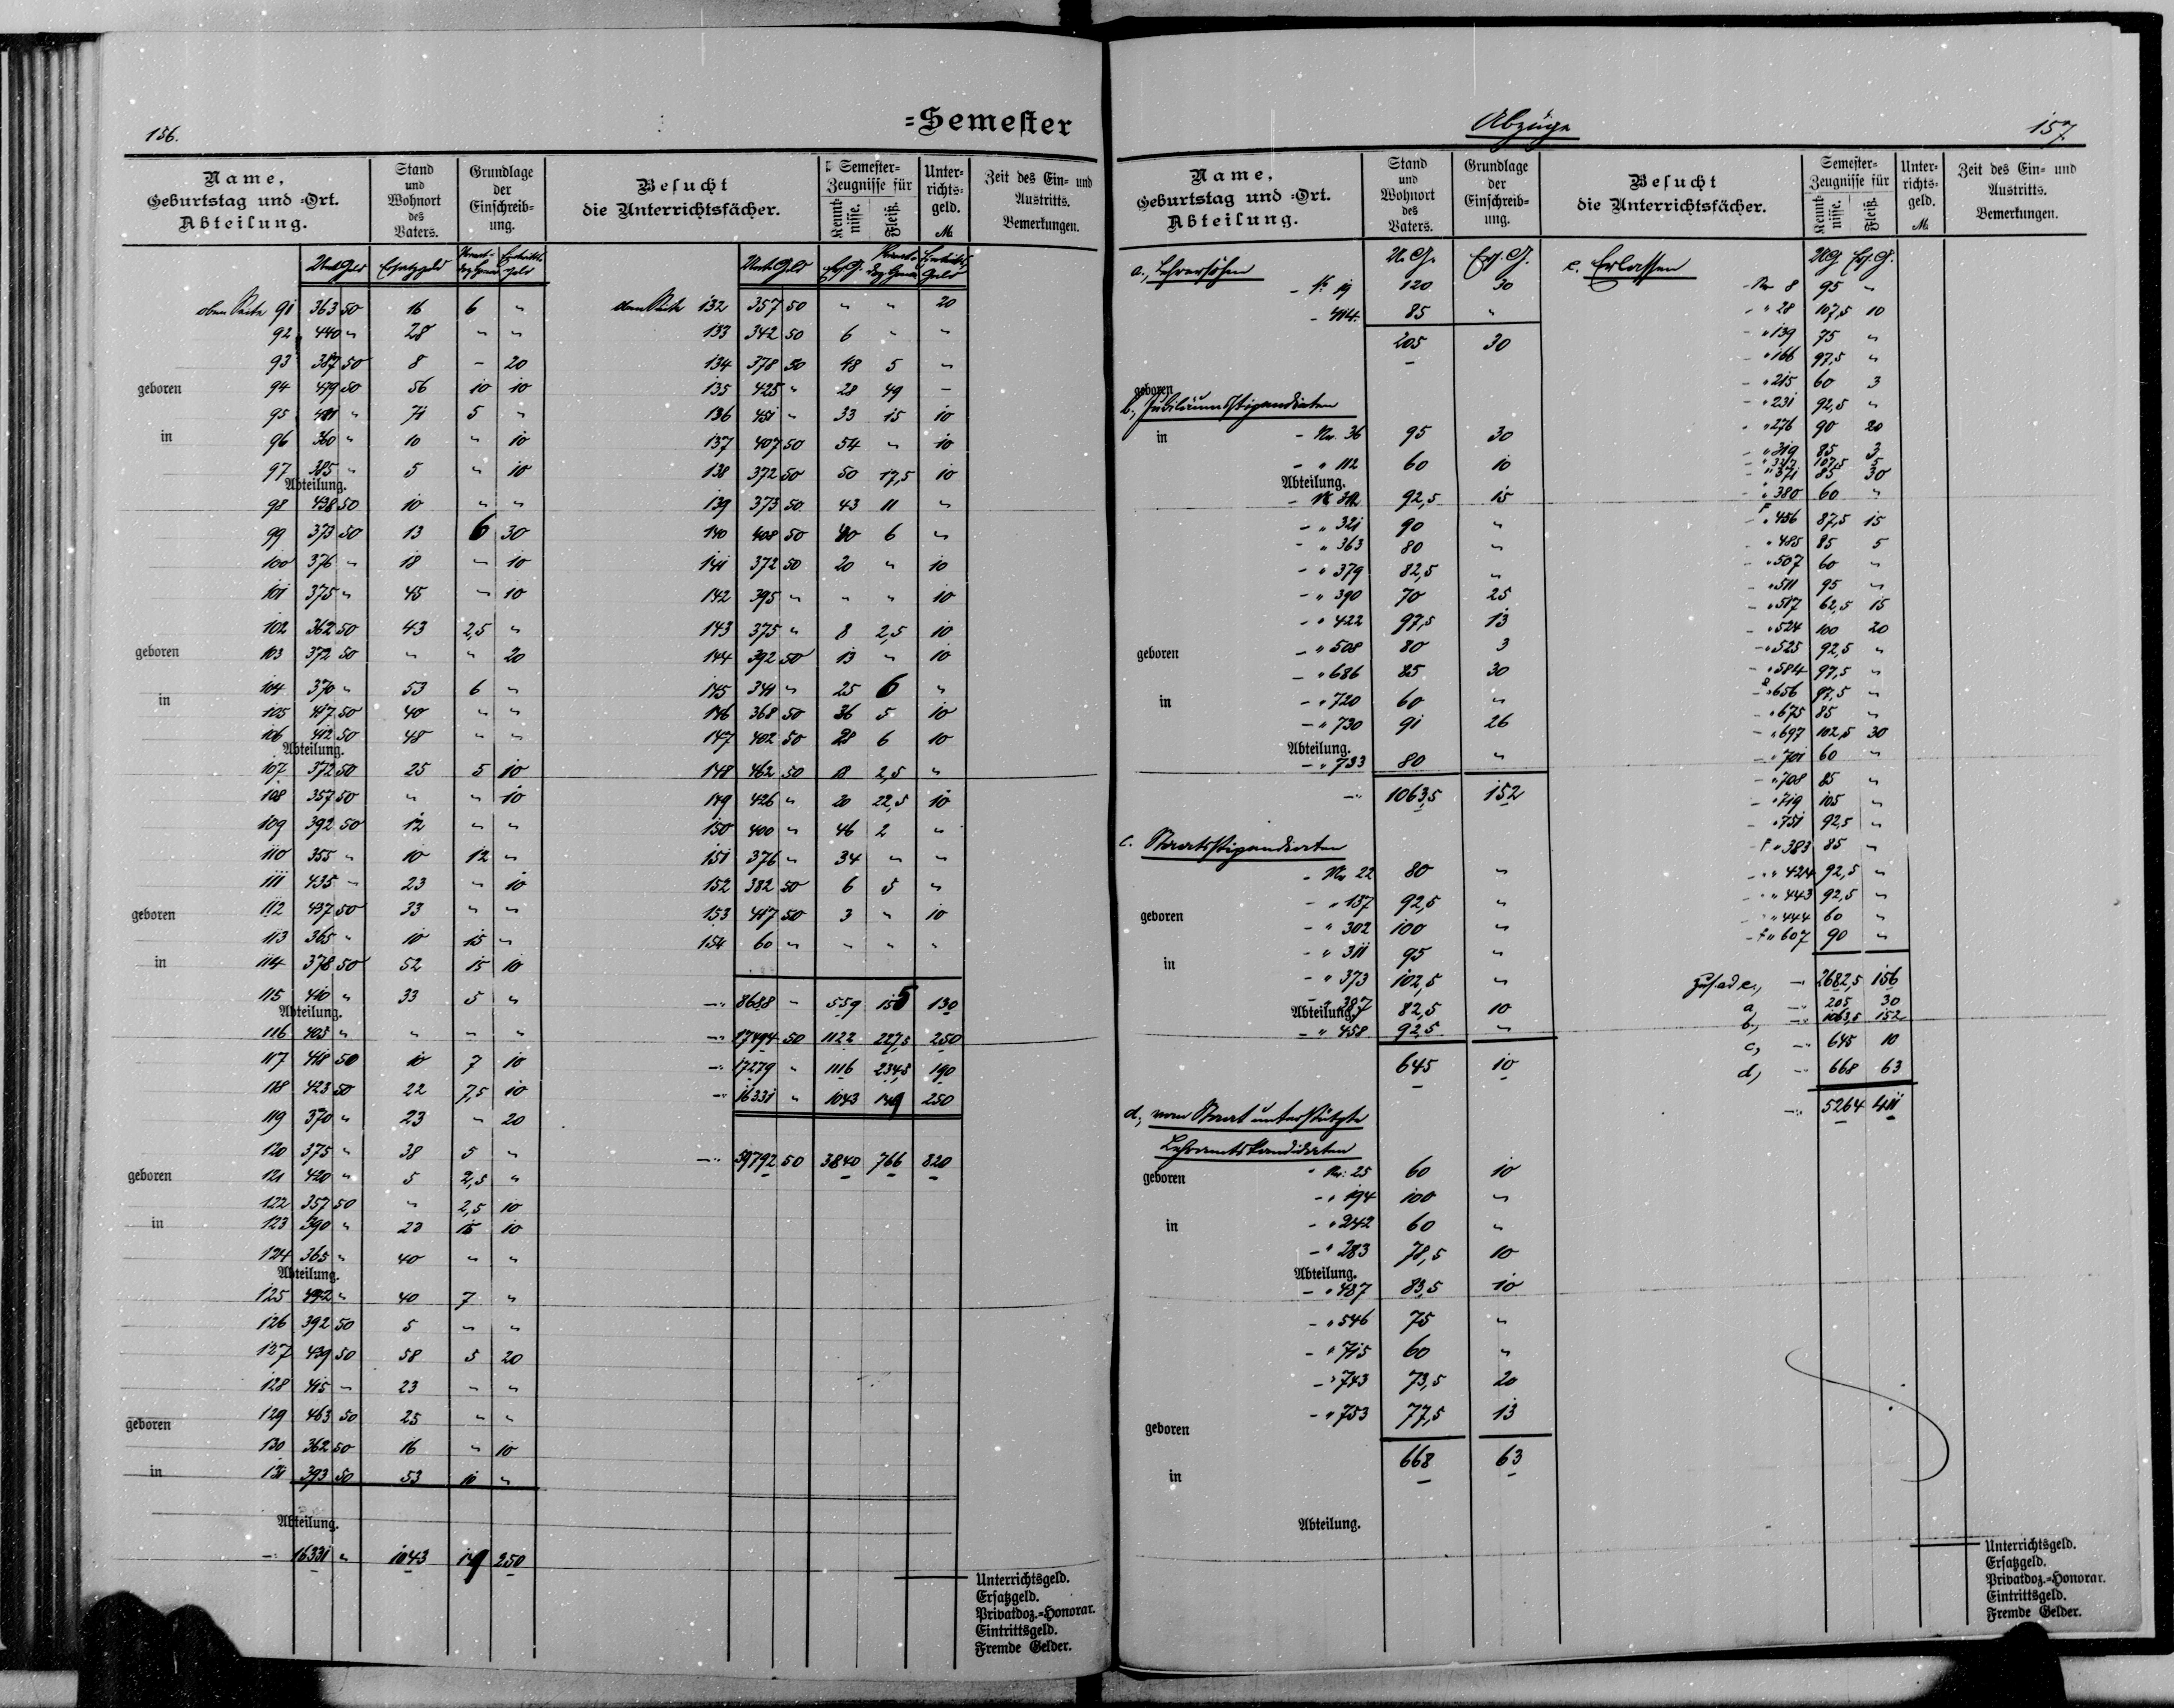 156.
=Semester
Name,
Geburtstag und =Ort.
Abteilung.
Stand
und
Wohnort
des
Vaters.
Grundlage
der
Einschreib=
ung.
Besucht
die Unterrichtsfächer.
Semester=
Zeugnisse für
Kennt-
nisse.
Fleiß.
Unter-
richts-
geld.
M
Zeit des Ein= und
Austritts.
Bemerkungen.
91 363 50 16 6 "
92 440 " 28 " "
93 387 50 8 - 20
geboren 94 479 50 56 10 10
95 " 71 5 "
in 96 360 " 10 " 10
97 385 " 5 " 10
Abteilung.
98 438 50 10 " "
99 373 50 13 6 30
100 376 " 18 " 10
101 375 " 45 " 10
102 362 50 43 2,5 "
geboren 103 372 50 " " 20
104 370 " 53 6 "
in 105 417 50 40 " "
106 412 50 48 " "
Abteilung.
107 372 50 25 5 10
108 357 50 " " 10
109 392 50 12 " "
110 355 " 10 12 "
111 435 " 23 " 10
geboren 112 437 50 33 " "
113 365 " 10 15 "
in 114 378 50 52 15 10
115 410 " 33 5 "
Abteilung.
116 405 " " " "
117 418 50 10 7 10
118 423 50 22 7,5 10
119 370 " 23 " 20
120 375 " 38 5 "
geboren 121 420 " 5 2,5 "
122 357 50 " 2,5 10
in 123 390 " 23 15 10
124 365 " 40 " "
Abteilung.
125 492 " 40 7 "
126 392 50 5 " "
127 439 50 58 5 20
128 415 " 23 " "
geboren 129 463 50 25 " "
130 362 50 16 " 10
in 131 393 50 53 10 "
Abteilung.
16331 " 1043 149 250
132 357 50 " " 20
133 342 50 6 " "
134 378 50 48 5 "
135 425 " 28 49 -
136 451 " 33 15 10
137 407 50 54 " 10
138 372 50 50 17,5 10
139 373 50 43 11 "
140 408 50 40 6 "
141 372 50 20 " 10
142 395 " " " 10
143 375 " 8 2,5 10
144 392 50 13 " 10
145 341 " 25 6 "
146 368 50 36 5 10
147 402 50 28 6 10
148 462 50 12 2,5 "
149 426 " 20 22,5 10
150 400 " 46 2 "
151 376 " 34 " "
152 382 50 6 5 "
153 417 50 3 " 10
154 60 " " " "
8688 - 559 155 130
17494 50 1122 227,5 250
17279 " 1116 234,5 190
16331 " 1043 149 250
59792 50 3840 766 820
Unterrichtsgeld.
Ersatzgeld.
Privatdoz.=Honorar.
Eintrittsgeld.
Fremde Gelder.
Abzüge
157.
Name,
Geburtstag und =Ort.
Abteilung.
Stand
und
Wohnort
des
Vaters.
Grundlage
der
Einschreib=
ung.
Besucht
die Unterrichtsfächer.
Semester=
Zeugnisse für
Kennt-
nisse.
Fleiß.
Unter-
richts-
geld.
M
Zeit des Ein= und
Austritts.
Bemerkungen.
U. G. Ers. G.
a., Lehrersöhne
- № 19 120 30
- 414. 85 "
205 30
geboren
b., Jubiläumsstipendiaten
in - Nr. 36 95 30
- " 112 60 10
Abteilung.
- 92,5 15
- " 321 90 "
- " 363 80 "
- " 379 82,5 "
- " 390 70 25
- " 422 97,5 13
geboren - " 508 80 3
- " 686 85 30
in - " 720 60 "
- " 730 91 26
Abteilung.
- " 733 80 "
1063,5 152
c. Staatsstipendiaten
- Nr 22 80 "
geboren - " 137 92,5 "
- " 302 100 "
in - " 311 95 "
- " 373 102,5 "
Abteilung. - " 387 82,5 10
- " 458 92,5 "
645 10
d., vom Staat unterstützte
Lehramtskandidaten
geboren - Nr. 25 60 10
- " 194 100 "
in - " 242 60 "
- " 283 78,5 10
Abteilung.
- " 487 83,5 10
- " 546 75 "
- " 715 60 "
- " 743 73,5 20
geboren - " 753 77,5 13
in 668 63
Abteilung.
e. Erlassen
UG Ers. G.
- Nr 8 95 "
- " 28 107,5 10
- " 139 75 "
- " 166 97,5 "
- " 215 60 3
- " 231 92,5 "
- " 276 90 20
- " 319 85 3
- " 337 107,5 5
- " 371 85 30
- " 380 60 "
- " 456 87,5 15
- " 485 85 5
- " 507 60 "
- " 511 95 "
- " 517 62,5 15
- " 524 100 20
- " 525 92,5 "
- " 584 97,5 "
- " 656 97,5 "
- " 675 85 "
- " 697 102,5 30
- " 701 60 "
- " 708 85 "
- " 719 105 "
- " 751 92,5 "
- " 383 85 "
- " 424 92,5 "
- " 443 92,5 "
- " 444 60 "
- " 607 90 "
Zus. ad e., 2682,5 156
a, 205 30
b., 1063,5 152
c, 645 10
d, 668 63
5264 411
Unterrichtsgeld.
Ersatzgeld.
Privatdoz.=Honorar.
Eintrittsgeld.
Fremde Gelder.